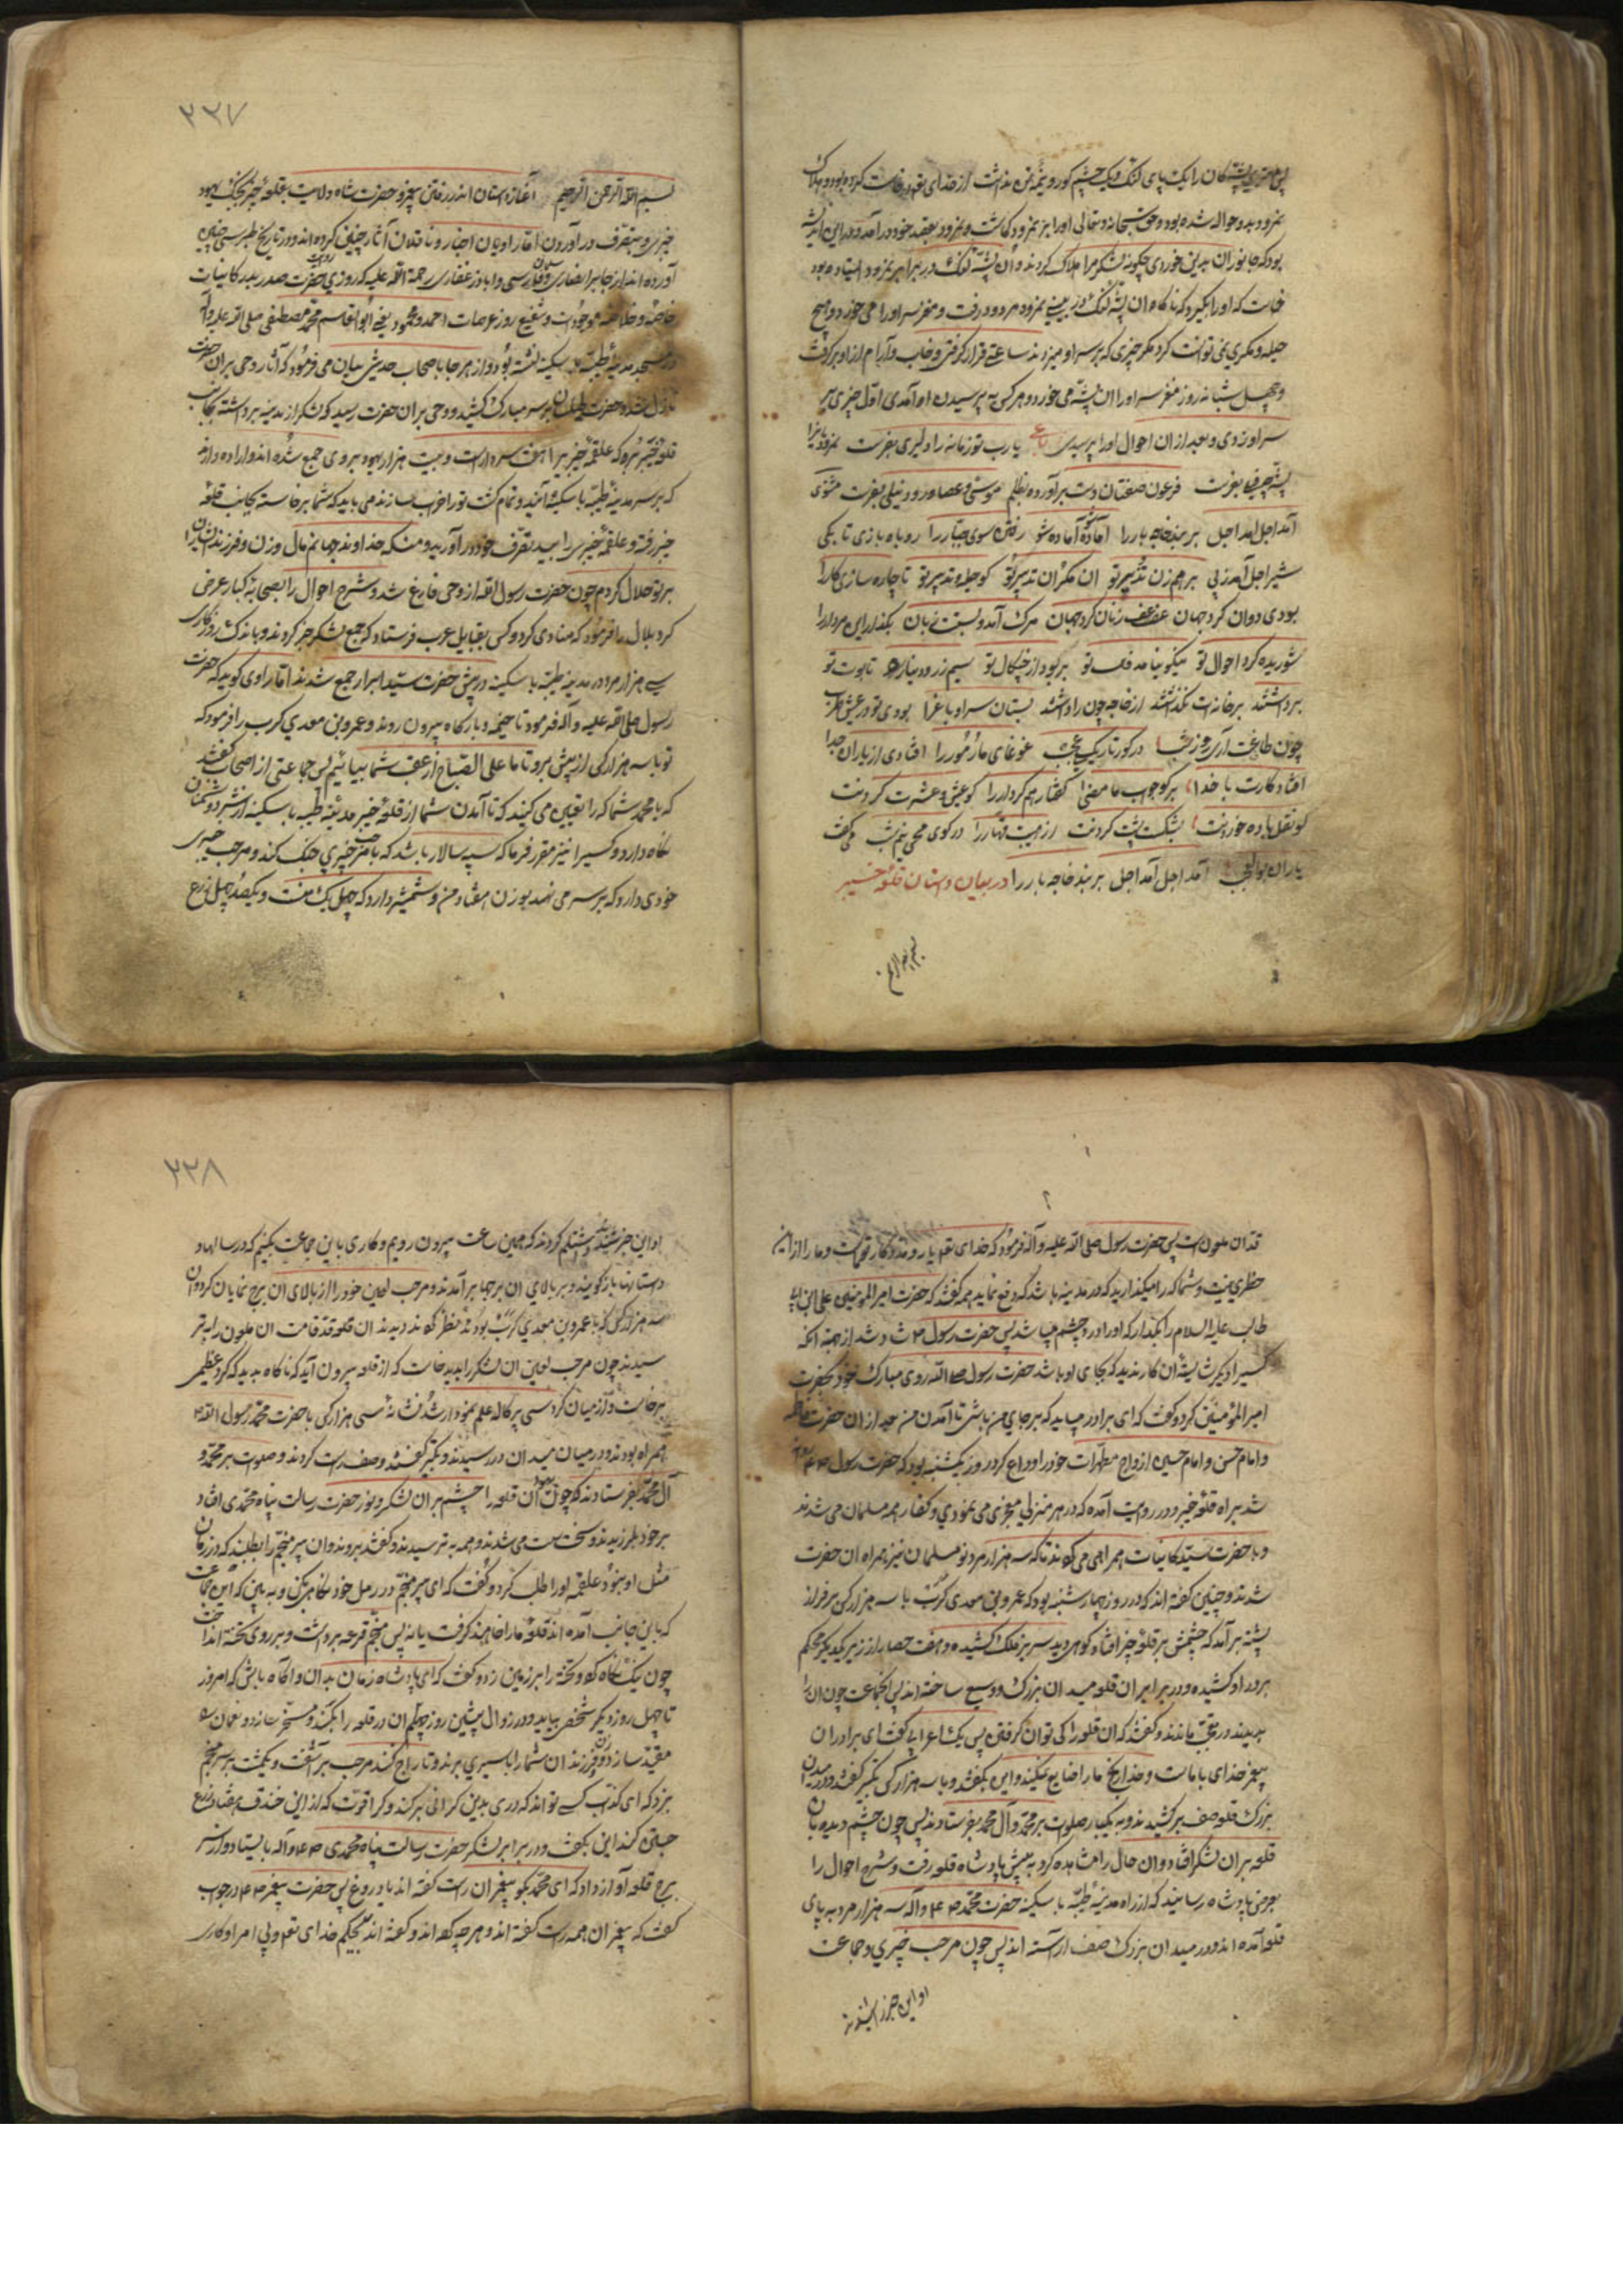 پس مهتر پشتگان را یک پای لنگ و یک چشم کور و نیمه تن نداشت از خدای تعالی درخواست کرده بود و هلاک
نمرود بدو حواله شده بود و حق سبحانه و تعالی او را بر نمرود گماشت و نمرود بقصد خود درآمد و در این اندیشه
بود که جانوران بدین خوردی چگونه لشکر مرا هلاک کردند و آن پشه لنگ در برابر نمرود ایستاده بود
خاست که او را بگیرد که ناگاه آن پشه لنگ در بینی نمرود مردود رفت و مغز سر او را می خورد و هیچ
حیله و مکری نمی توانست کرد مگر چیزی که بر سر او میزدند ساعتی قرار گرفتی و خاب و آرام از او برگرفت
و چهل شبانه روز مغز سر او را آن پشه می خورد و هر کس به پرسیدن او آمدی اول چیزی بر
سر او زدی و بعد از آن احوال او را پرسیدی رباعی یا رب تو زمانه را دلیری بفرست نمرود
پشه چو فیل بفرست فرعون صفتان دست برآورده بظلم موسی و عصا و رود نیلی بفرست مثنوی
آمد اجل آمد اجل بر بند خاجه بار را آماده شو آماده شو رفتن سوی جبار را روباه بازی تا بکی
شیر اجل آمد ز پی بر هم زن تدبیر تو آن مکر آن تدبیر تو کو حیله و تدبیر تو تا چاره سازی کار را
بودی دوان گرد جهان عفعف زنان گرد جهان مرگ آمد و بست زبان بگذار این مردار را
شوریده کرد احوال تو
برداشتند بر خانه ات نگذشتند از خاجه چون راداشتند بستان سرا و باغ را بودی تو در عیش و طرب
چون طاعت آری روز و شب در گور تاریک عجب غوغای مار و مور را افتادی از یاران جدا
افتاد کارت با خدا بر گو جواب ما مضی گفتار هم کردار را کو عیش و عشرت کردنت
کو نقل باده خوردنت بشکست پشت گردنت از هیبت قهار را در گوی محیی نیم شب می گفت
یاران بوالعجب آمد اجل آمد اجل بر بند خاجه بار را در بیان داستان قلعه خیبر
بسم الله الرحمن
۲۲۷
بسم الله الرحمن الرحیم آغاز داستان اندر رفتن پیغمبر و حضرت شاه ولایت بقلعه خیبر بجنگ یهود
خیبری و بتصرف درآوردن اما راویان اخبار و ناقلان آثار چنین کرده اند و در تاریخ طبرسی چنین
آورده اند از جابر انصاری و سلمان فارسی و اباذر غفاری رحمة الله علیه که روزی حضرت صدر بدر کاینات
خاصه و خلاصه موجودات و شفیع روز عرصات احمد و محمود یعنی ابوالقاسم محمد مصطفی صلی الله علیه و آله
در مسجد مدینه طیبه با سکینه نشسته بود و از هر جا با صحاب حدیثی بیان می فرمود که آثار وحی بر آن حضرت
نازل شد و حضرت بر سر مبارک کشید و وحی بر آن حضرت رسید که لشکر از مدینه برداشته بجانب
قلعه خیبر برو که علقمه خیبر را هفت سردار است و بیست هزار یهود بر وی جمع شده اند و اراده دارند
که بر سر مدینه طیبه با سکینه آیند و تمام کشت تو را خراب سازند می باید که شما برخاسته بجانب قلعه
خیبر رفته و علقمه خیبر را بید تصرف خود درآورید و منکه خداوند جهانم مال و زن و فرزندان ایشان را
بر تو حلال کردم چون حضرت رسول الله از وحی فارغ شد و شرح احوال را بصحابه کبار عرض
کرد بلال را فرمود که منادی کرد و کس بقبایل عرب فرستاد که جمع لشکر خبر کردند و باندک روزگاری
سی هزار مرد در مدینه طیبه با سکینه در پیش حضرت سید ابرار جمع شدند اما راوی گوید که حضرت
رسول صلی الله علیه و آله فرمود تا خیمه و بارگاه بیرون روند و عمروبن معدی کرب را فرمود که
تو با سه هزار کس از پیش برو تا ما علی الصباح از عقب شما بیائیم پس جماعتی از اصحاب گفتند
که یا محمد شما که را تعیین می کنید که تا آمدن شما از قلعه خیبر مدینه طیبه با سکینه از شر دشمنان
نگاه دارد و کسی را نیز مقرر فرما که سپه سالار باشد که با مرحب خیبری جنگ کند و مرحب خیبری
خودی دارد که بر سر می نهد بوزن هفتاد من و شمشیر دارد که چهل یک منست و یکصد چهل زرع
قد آن ملعونست پس حضرت رسول صلی الله علیه و آله فرمود که خدای تعالی یار و مددکار تو است و ما را از این
خطری نیست و شما که را میگذارید که در مدینه باشد که دفع نماید همه گفتند که حضرت امیرالمومنین علی ابن ابی
طالب علیه السلام را بگذار که او را درد چشم میباشد پس حضرت رسول شاد شد از بهر آنکه
کسی را دیگر شایسته آن کار ندید که بجای او باشد حضرت رسول الله روی مبارک خود بحضرت
امیرالمؤمنین کرد و گفت که ای برادر میباید که بر جای من باش تا آمدن من بعد از آن حضرت فاطمه
و امام حسن و امام حسین ازواج مطهرات خود را وداع کرد روز یکشنبه بود که حضرت رسول روانه
شد براه قلعه خیبر و در روایت آمده که در هر منزلی معجزی می نمودی و کفار همه مسلمان می شدند
و با حضرت سید کاینات همراهی می کردند تا که سه هزار مرد نو مسلمان نیز همراه آن حضرت
شدند و چنین گفته اند که در روز چهارشنبه بود که عمروبن معدی کرب با سه هزار کس بر فراز
پشته برآمد که چشمش بر قلعه خیبر افتاد کوهی دید سر بر فلک کشیده و هفت حصار از زیر یکدیگر محکم
بر در او کشیده و در برابر آن قلعه میدان بزرگ و وسیع ساخته اند پس آنجماعت چون آن را
بدیدند در تعجب ماندند و گفتند که آن قلعه را کی توان گرفتن پس یک اعرابی گفت ای برادران
پیغمبر خدای با ماست و خدا رنج ما را ضایع نمیکند و این بگفتند و با سه هزار کس تکبیر گفتند و در میدان
بزرگ قلعه صف برکشیدند و به یکبار صلوات بر محمد و آل محمد بفرستادند پس چون چشم دیده بان
قلعه بر آن لشکر افتاد و آن حال را مشاهده کرد به پیش پادشاه قلعه رفت و شرح احوال را
بعرض پادشاه رسانید که از راه مدینه طیبه با سکینه حضرت محمد و آله سه هزار مرد به پای
قلعه آمده اند و در میدان بزرگ صف آراسته اند پس چون مرحب خیبری و جماعت
او این خبر را شنیدند
۲۲۸
او این خبر شنیدند اشتلم کردند که همین ساعت بیرون رویم و کاری با این جماعت بکنیم که در سالها و
داستانها باز گویند و بر بالای آن برجها برآمدند و مرحب لعین خود را از بالای آن برج نمایان کرد و آن
سه هزار کس که با عمروبن معدی کرب بودند نظر کردند دیدند آن قلعه قد قامت آن ملعون را به تر
سیدند چون مرحب لعین آن لشکر را بدید خاست که از قلعه بیرون آید که ناگاه بدید که گرد عظیمی
برخاست و از میان گرد سی پرکاله علم نمودار شد نشانه سی هزار کس با حضرت محمد رسول الله
همراه بودند و در میان میدان در رسیدند و تکبیر گفتند و صف راست کردند و صلوات بر محمد و
آل محمد بفرستادند که چون آن قلعه را چشم بر آن لشکر و نور حضرت رسالت پناه محمدی افتاد
بر خود بلرزیدند و سخت سست می شدند و همه به ترسیدند و گفتند بروند و آن پیر منجم را بطلبند که در زمان
مثل او نبود علقمه او را طلب کرد و گفت که ای پیر منجم در رمل خود نگاه بکن و به بین که این جماعت
که باین جانب آمده اند قلعه ما را خاهند گرفت یا نه پس منجم قرعه برداشت و بر روی تخته انداخت
چون نیک نگاه کرد و تخته را بر زمین زد و گفت که ای پادشاه زمان بدان و آگاه باش که امروز
تا چهل روز دیگر شخصی بیاید و در زوال پیشین روز چهلم آن در قلعه را بکند و مسخر سازد و تمامی را
مقید سازد و زن و فرزندان شما را باسیری برند و تاراج کند مرحب برآشفت و یکمشت بر سر منجم
بزد که ای کذاب کسی تواند که دری بدین گرانی بر کند و کرا قوت که از این خندق هفتاد زرع
جستی کند این بگفت و در برابر لشکر حضرت رسالت پناه محمدی و آله بایستاد و از سر
برج قلعه آواز داد که ای محمد بگو پیغمبران راست گفته اند یا دروغ پس حضرت پیغمبر در جواب
گفت که پیغمبران همه راست گفته اند و هر چه کرده اند و گفته اند بحکم خدای تعالی و بی امر او کاری